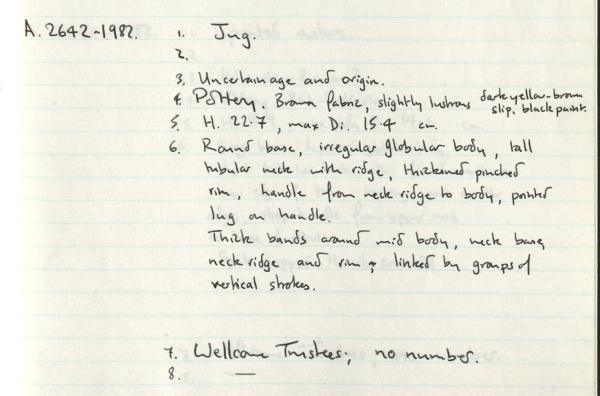 A.2642-1982. 1. Jug.
2.
3. Uncertain age and origin.
4. Pottery. Brown fabric, slightly lustrous dark yellow-brown
slip, black paint.
5. H. 22.7, max Di. 15.4 cm.
6. Round base, irregular globular body, tall
tubular neck with ridge, thickened pinched
rim, handle from neck ridge to body, pointed
lug on handle.
Thick bands around mid body, neck base,
neck ridge and rim, linked by groups of
vertical strokes.
7. Wellcome Trustees; no number.
8. —